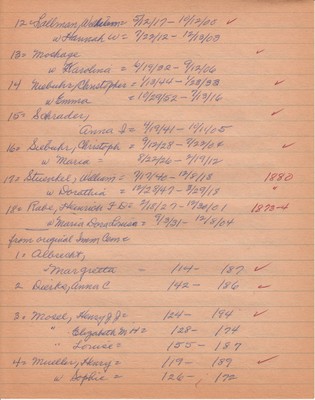 12= Sallman, Wilhelm= 5/12/17- 10/12/00 ✓
w Hannah W = 7/23/12 - 12/12/03
13= Mockage
w Karolina = 6/19/32 - 9/12/06 ✓
14 Niebuhr, Christopher = 1/13/44 - 1/23/33 ✓
w Emma = 10/29/52 - 7/13/16
15= Schrader, ✓
Anna I= 7/19/41 - 10/11/05
16= Siebuhr, Christoph = 9/12/28 - 5/23/08 ✓
w Maria = 8/22/26 - 5/19/12
17= Struenkel, William = 7/17/40 - 12/8/18 1880
w Dorathia = 10/23/47 - 3/29/13 "
18= Rabe, Heinrich F D= 5/18/27 - 12/30/01 1873-4
w Maria Dora Louisa = 7/9/31 - 12/18/04
from original Imm Cem =
1= Albrecht,
Margretta - 114 - 187 ✓
2 Dierks, Anna C 142 - 186 ✓
3= Mosel, Henry J J= 124 - 194 ✓
" Elizabeth M H= 128 - 174
" Louise= 155 - 187
4= Mueller, Henry= 119 - 189 ✓
w Sophie = 126 - 172